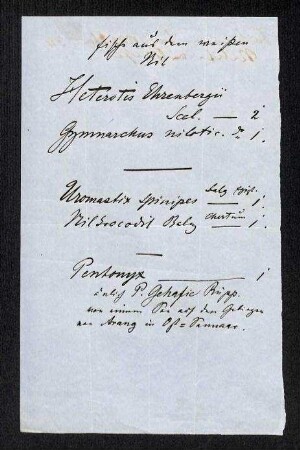 Fische aus dem weißen
Nil
Heterotis Ehrenbergii
Scel. — 2
Gymnarchus nilotic. do 1.
Uromastix spinipes — 1
Nilkrocodil Balg — 1.
Pentonyx — 1
änlich P. Gehafie Rüpp.
von einem See auf den Gebirgen
von Arang in Ost=Sennaar.